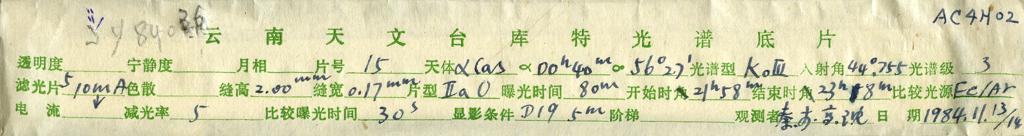 AC4H02
云南天文台库特光谱底片
透明度 宁静度 月相 片号 15 天体 αCas α 00ʰ40ᵐ 56°27′ 光谱型 K0Ⅲ 入射角 44°.755 光谱级 3
滤光片 色散 缝高 2.00ᵐᵐ 缝宽 0.17ᵐᵐ 片型 Ⅱa O 曝光时间 80ᵐ 开始时角 21ʰ58ᵐ 结束时角 23ʰ18ᵐ 比较光源 Fe/Ar
电流 10mA 减光率 5 比较曝光时间 30ˢ 显影条件 D19 5ᵐ 阶梯 观测者 日期 1984.11.13/14